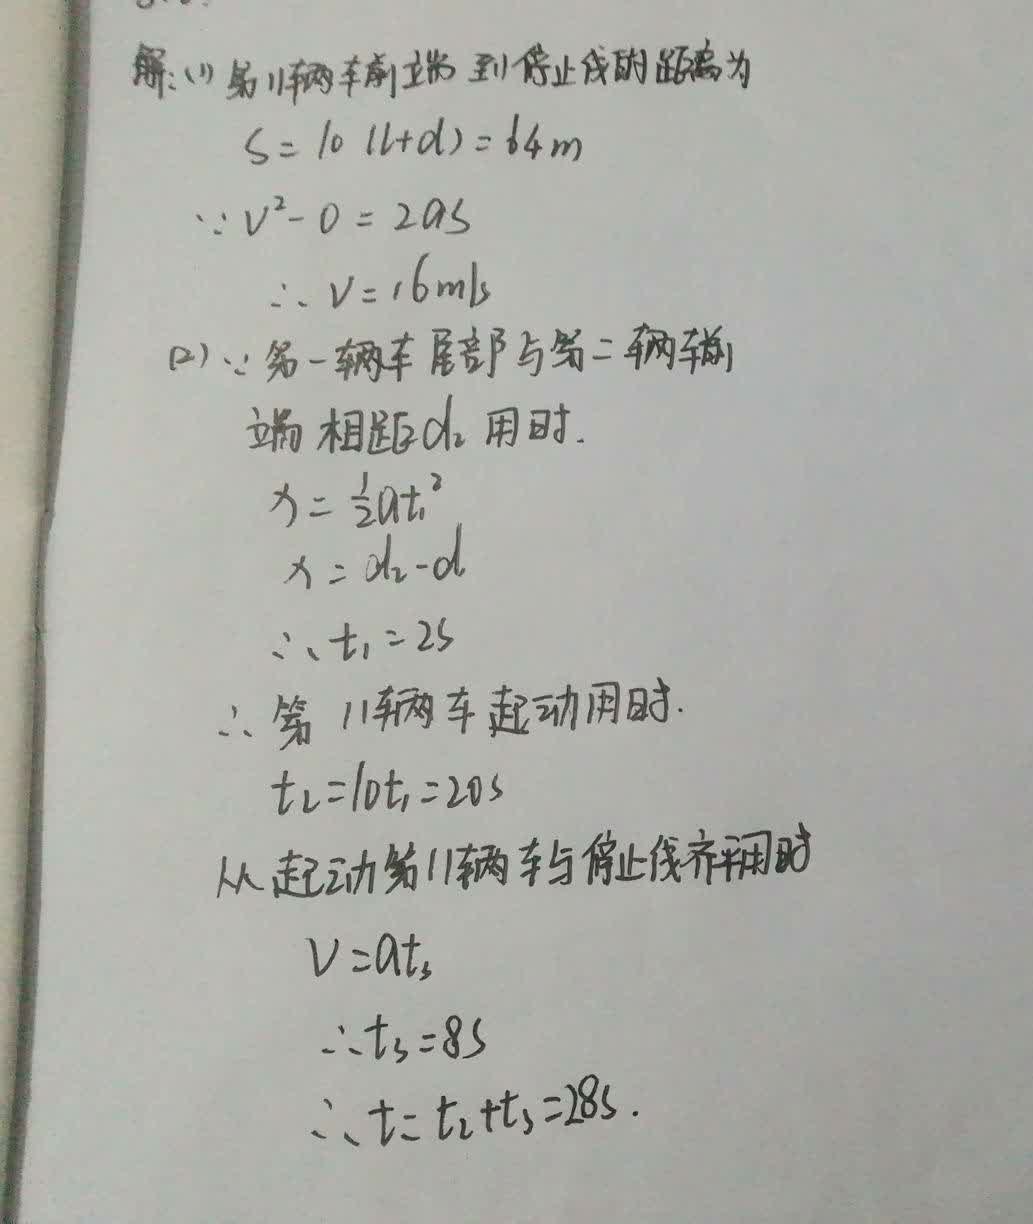 解:(1)第11辆车前端到停止线的距离为
S=10(l+d)=64m
∵V²-0=2aS
∴V=16m/s
(2)∵第一辆车尾部与第二辆车前
端相距d₂用时.
x=½at₁²
x=d₂-d
∴t₁=2s
∴第11辆车起动用时.
t₂=10t₁=20s
从起动第11辆车与停止线齐平用时
V=at₃
∴t₃=8s
∴t=t₂+t₃=28s.